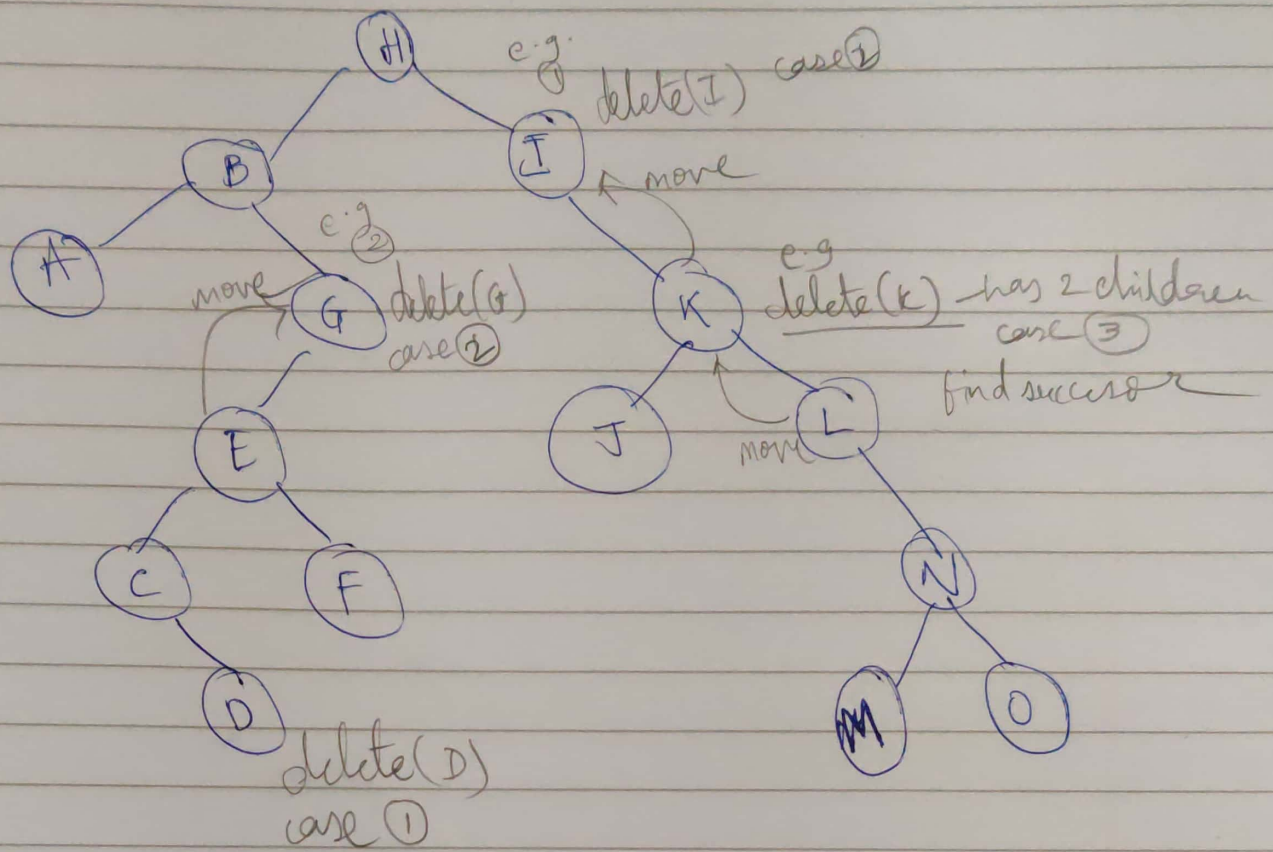 H
e.g.
①
delete(I) case ②
B
I
move
A
e.g
②
e.g
move
G
delete(G)
case ②
K
delete(K) - has 2 children
case ③
find succesor
E
J
move
L
C
F
N
D
M
O
delete(D)
case ①